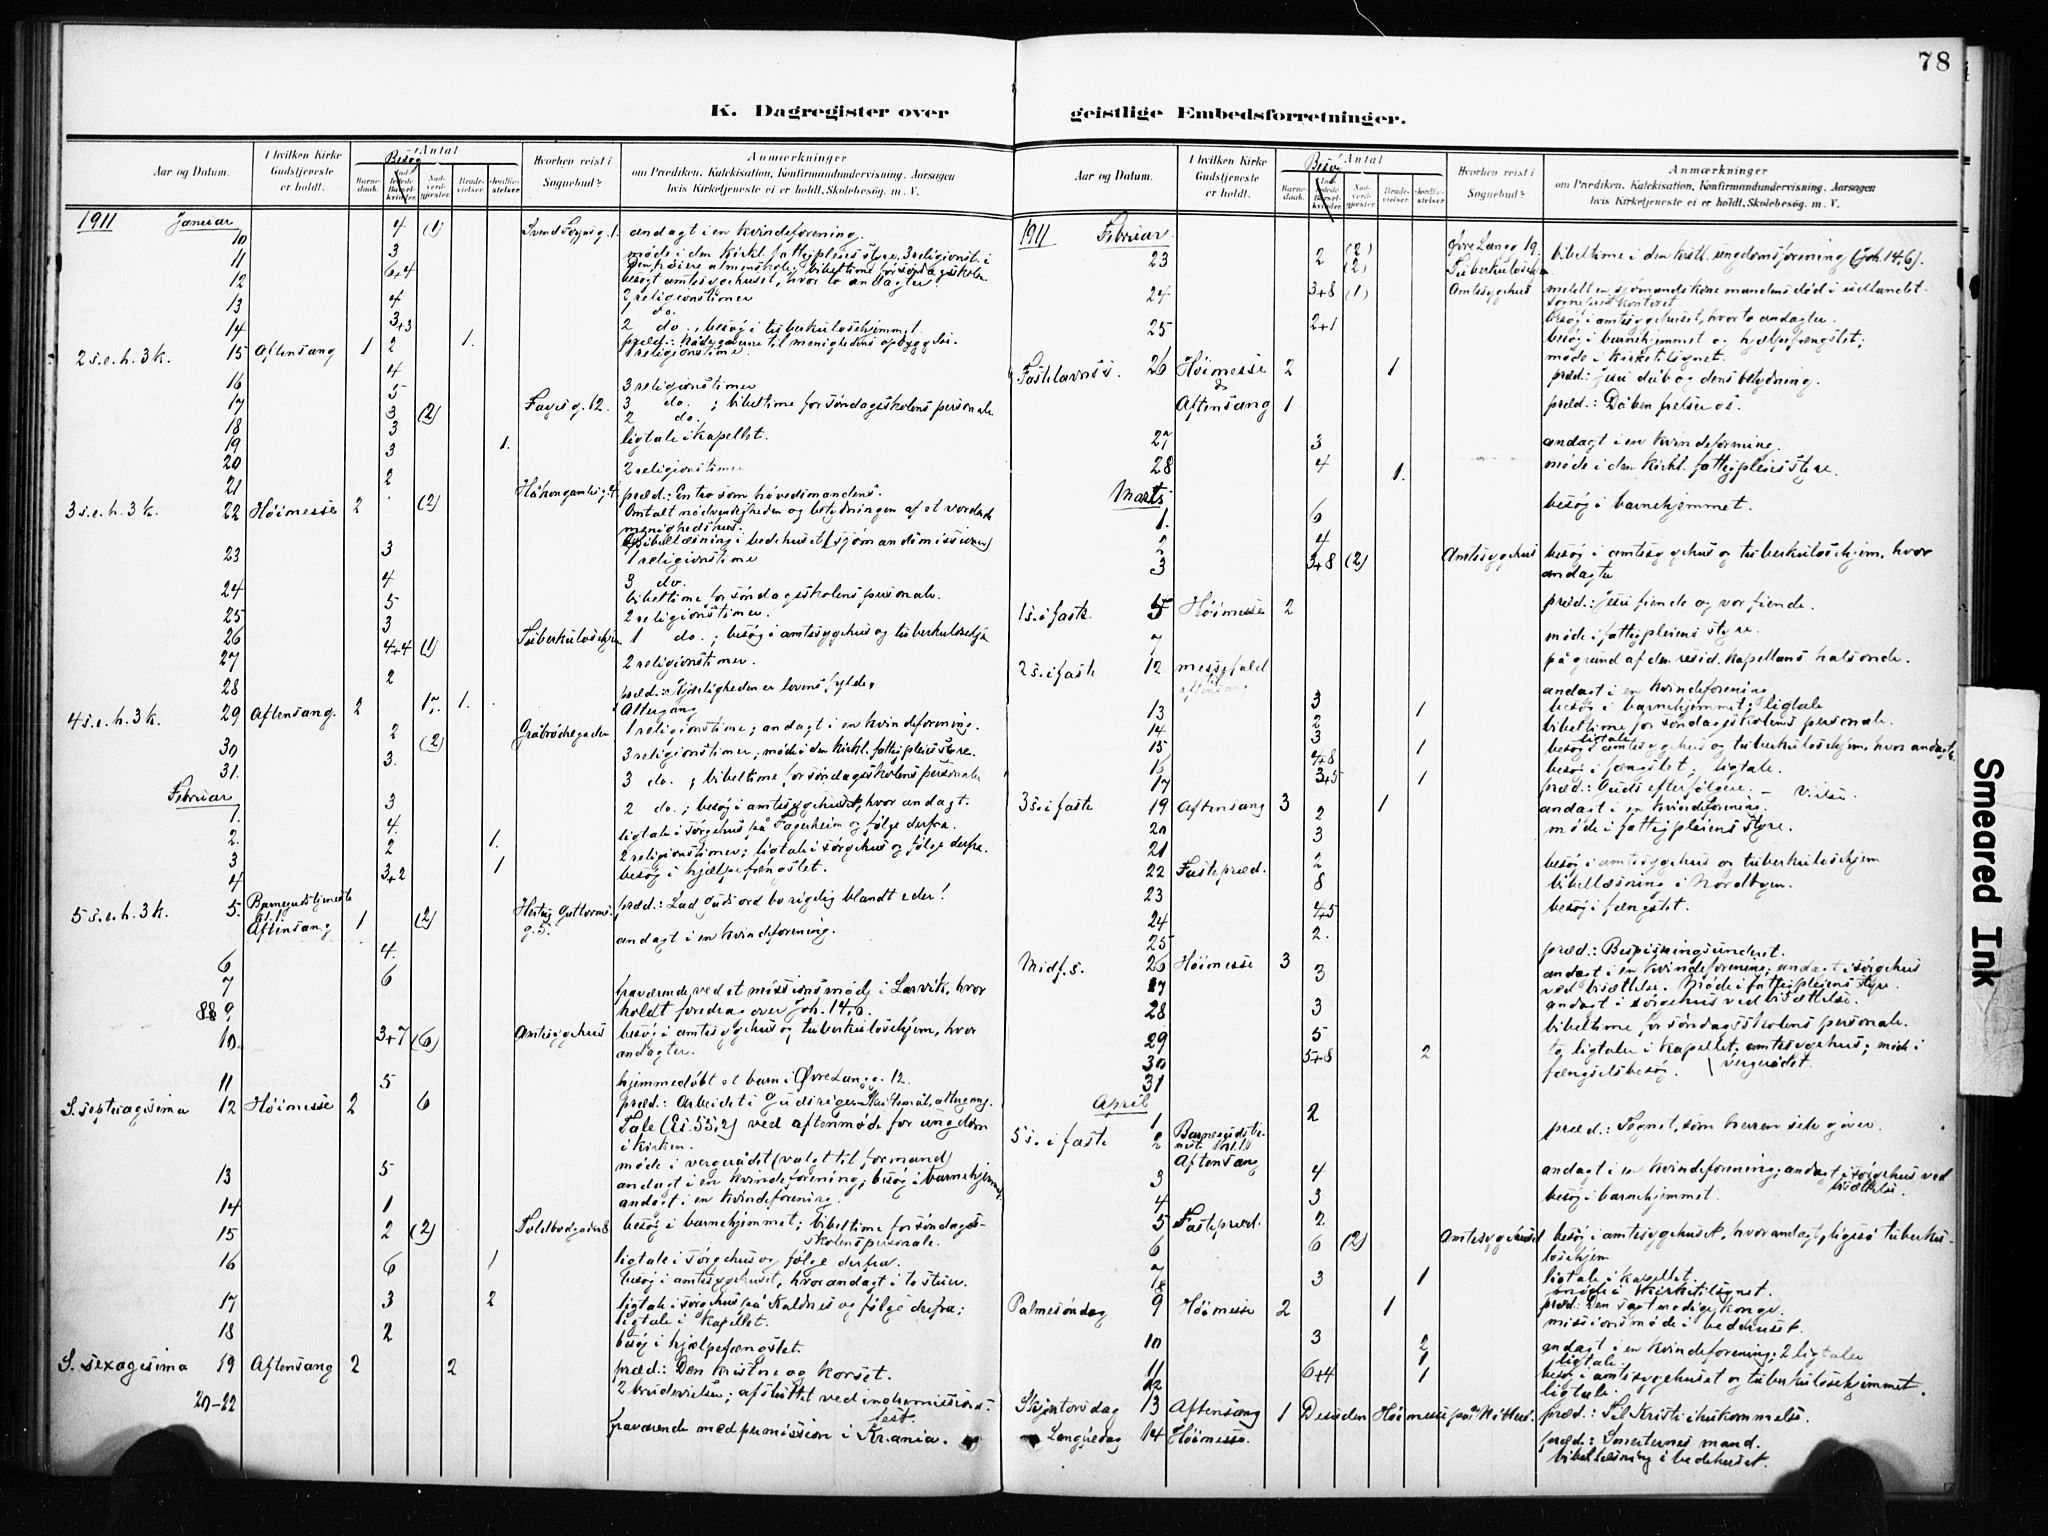 78
K. Dagregister over geistlige Embedsforretninger.
Aar og Datum.
I hvilken Kirke Gudstjeneste er holdt.
Besøg
Antal
Barne-daab.
Ind-ledede Barsel-kvinder.
Nad-verd-gjester.
Brude-vielser.
Jordfæ-stelser.
Hvorhen reist i Sognebud?
Anmærkninger
om Prædiken, Katekisation, Konfirmandundervisning, Aarsagen
hvis Kirketjeneste ei er holdt, Skolebesøg. m. V.
1911 Januar
10 4 (1) Svend Foynsg. 1. andagt i en kvindeforening.
11 3 møde i den kirkl. fattigpleies styre, 3 religionst. i
12 6+4 besøgt amtssygehuset, hvor to andagter
13 4 2 religionstimer
1 do.
14 3+3 2 do., besøg i tuberkuloschjemmet.
2 s.e.h.3k. 15 Aftensang 1 2 1. præd.: Nådegaverne til menighedens opbyggelse.
1 religionstime.
16 4 3 religionstimer
17 5 Fayesg. 12. 3 do. ; bibeltime for søndagsskolens personale
18 3 (2) 2 do.
19 3 1. ligtale i kapellet.
20 3 2 religionstimer
21 2
3 s.e.h.3k. 22 Høimesse 2 (2) præd.: En tro som høvedsmandens.
Omtalt nødvendigheden og betydningen af et vordende
menighedshus.
Bibellæsning i bedehuset (sjømandsmissionen)
23 3 1 religionstime
24 4 3 do.
25 5 bibeltime for søndagsskolens personale.
2 religionstimer.
26 3 1 do. ; besøg i amtssygehus og tuberkuloschj.
27 4+4 (1) 2 religionstimer.
28 2
4 s.e.h.3k. 29 Aftensang. 2 17. 1. præd.: Kjærligheden er lovens fylde,
Altergang
30 2 (2) Gråbrødregaden 1 religionstime; andagt i en kvindeforening.
31. 3. 3 religionstimer; møde i den kirkl. fattigpleies styre.
Februar 3 do. ; bibeltime for søndagsskolens personale
1. 3 2 do. ; besøg i amtssygehuset, hvor andagt.
2. 4. 1. ligtale i sørgehus på Fagerheim og følge derfra.
3 2 2 religionstimer; ligtale i sørgehus og følge derfra.
4 3+2 1 besøg i hjælpefængslet.
5 s.e.h.3k. 5. Barnegudstjeneste
Aftensang 1 (2) Hertug Guttorms g. 5. præd.: Lad Guds ord bo rigelig blandt eder!
6 4. andagt i en kvindeforening.
7 6
8 9. fraværende ved et missionsmøde i Larvik, hvor
holdt foredrag over Joh. 14,6.
10. 3+7 (6) Amtssygehus besøg i amtssygehus og tuberkuloschjem, hvor
andagter.
11 5 hjemmedøbt et barn i Øvre Langg. 12.
S. septuagesima 12 Høimesse 2 6 præd.: Arbeidet i Guds rige. Skriftemål, altergang.
Tale (Es. 55,2) ved aftenmøde for ungdom
i kirken.
møde i vergerådet (valgt til formand)
13 5 andagt i en kvindeforening; besøg i barnehjemmet.
14 1 andagt i en kvindeforening.
15 2 (2) Toldbodgaden 8 besøg i barnehjemmet; bibeltime for søndags-
skolens personale.
16 6 1 ligtale i sørgehus og følge derfra.
besøg i amtssygehuset, hvor andagt i to stuer.
17 3 2 ligtale i sørgehus på Kaldnes og følge derfra;
ligtale i kapellet.
18 2 besøg i hjælpefængslet.
S. sexagesima 19 Aftensang 2 2 præd.: Den kristne og korset.
2 brudevielser; afsluttet ved indremissions-
fest.
20-22 fraværende med permission i Kr.ania.
Aar og Datum.
I hvilken Kirke Gudstjeneste er holdt.
Besøg
Antal
Barne-daab.
Ind-ledede Barsel-kvinder.
Nad-verd-gjester.
Brude-vielser.
Jordfæ-stelser.
Hvorhen reist i Sognebud?
Anmærkninger
om Prædiken, Katekisation, Konfirmandundervisning, Aarsagen
hvis Kirketjeneste ei er holdt, Skolebesøg. m. V.
1911 Februar
23 2 (2) Øvre Langg 19. bibeltime i den kristl. ungdomsforening (Joh. 14,6).
(2) Tuberkuloschj.
24 3+8 (1) Amtssygehus meldt en sjømandskone mandens død i udlandet.
besøg i amtssygehuset, hvor to andagter.
25 2+1 besøg i barnehjemmet og hjælpefængslet;
møde i kirketilsynet.
Fastelavnss. 26 Høimesse 2 1 præd.: Jesu dåb og dens betydning.
&
Aftensang 1 præd.: Dåben frelser os.
27 3 andagt i en kvindeforening.
28 4 1. møde i den kirkl. fattigpleies styre.
Marts
1. 6 besøg i barnehjemmet.
2 4
3 3+8 (2) Amtssygehus besøg i amtssygehus og tuberkuloschjem, hvor
andagter
1 s. i faste. 5 Høimesse 2 præd.: Jesu fiende og vor fiende.
7 møde i fattigpleiens styre.
2 s. i faste 12 messefald på grund af den resid. kapellans halsonde.
aftensang
13 3 andagt i en kvindeforening
14 2 1 besøg i barnehjemmet; ligtale
15 3 bibeltime for søndagsskolens personale.
16 4+8 1 ligtale
besøg i amtssygehus og tuberkuloschjem, hvor andagt.
17 3+5 1 besøg i fængslet; ligtale.
3 s. i faste 19 Aftensang 3 1 præd.: Guds efterfølgere. – Vielse.
20 2 andagt i en kvindeforening.
21 3 møde i fattigpleiens styre.
22 Fastepræd. 2
23 8 besøg i amtssygehus og tuberkuloschjem
24 4+5 bibellæsning i Nordbyen.
25 2. besøg i fængslet.
Midf. s. 26 Høimesse 3 præd.: Bespisningsunderet.
27 3 andagt i en kvindeforening; andagt i sørgehus
ved bisættelse. Møde i fattigpleiens styre.
28 3 andagt i sørgehus ved bisættelse.
29 5 bibeltime for søndagsskolens personale.
30 5+8 2 to ligtaler i kapellet; amtssygehus; møde i
vergerådet.
31 fængselsbesøg.
April
1 2
5 s. i faste 2 Barnegudstje-
neste
Aftensang præd.: Tegnet, som herren selv giver.
3 4 andagt i en kvindeforening; andagt i sørgehus ved
bisættelse.
4 3 besøg i barnehjemmet.
5 Fastepræd. 2
6 6 (2) Amtssygehuset besøg i amtssygehuset, hvor andagt, ligeså tuberku-
loschjem
7
8 3 1 ligtale i kapellet.
møde i kirketilsynet.
Palmesøndag 9 Høimesse 2 1 præd.: Den sagtmodige konge.
missionsmøde i bedehuset.
10 3 2 andagt i en kvindeforening; 2 ligtaler
1 ligtale.
11 6+4 1 besøg i amtssygehuset og tuberkuloschjemmet.
12 ligtale.
Skjærtorsdag 13 Aftensang 1 Desuden Høimesse på præd.: Til Kristi ihukommelse.
Langfredag 14 Høimesse. præd.: Smerternes mand.
bibellæsning i bedehuset.
Smeared Ink